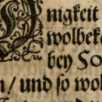 nigkeit
wolbek
bey So
n/ und so wol